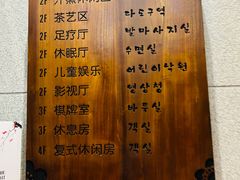 2F 茶艺区 다도구역
2F 足疗厅 발마사지실
2F 休眠厅 수면실
2F 儿童娱乐 어린이락원
2F 影视厅 영상청
3F 棋牌室 바둑실
3F 休息房 객실
4F 复式休闲房 객실